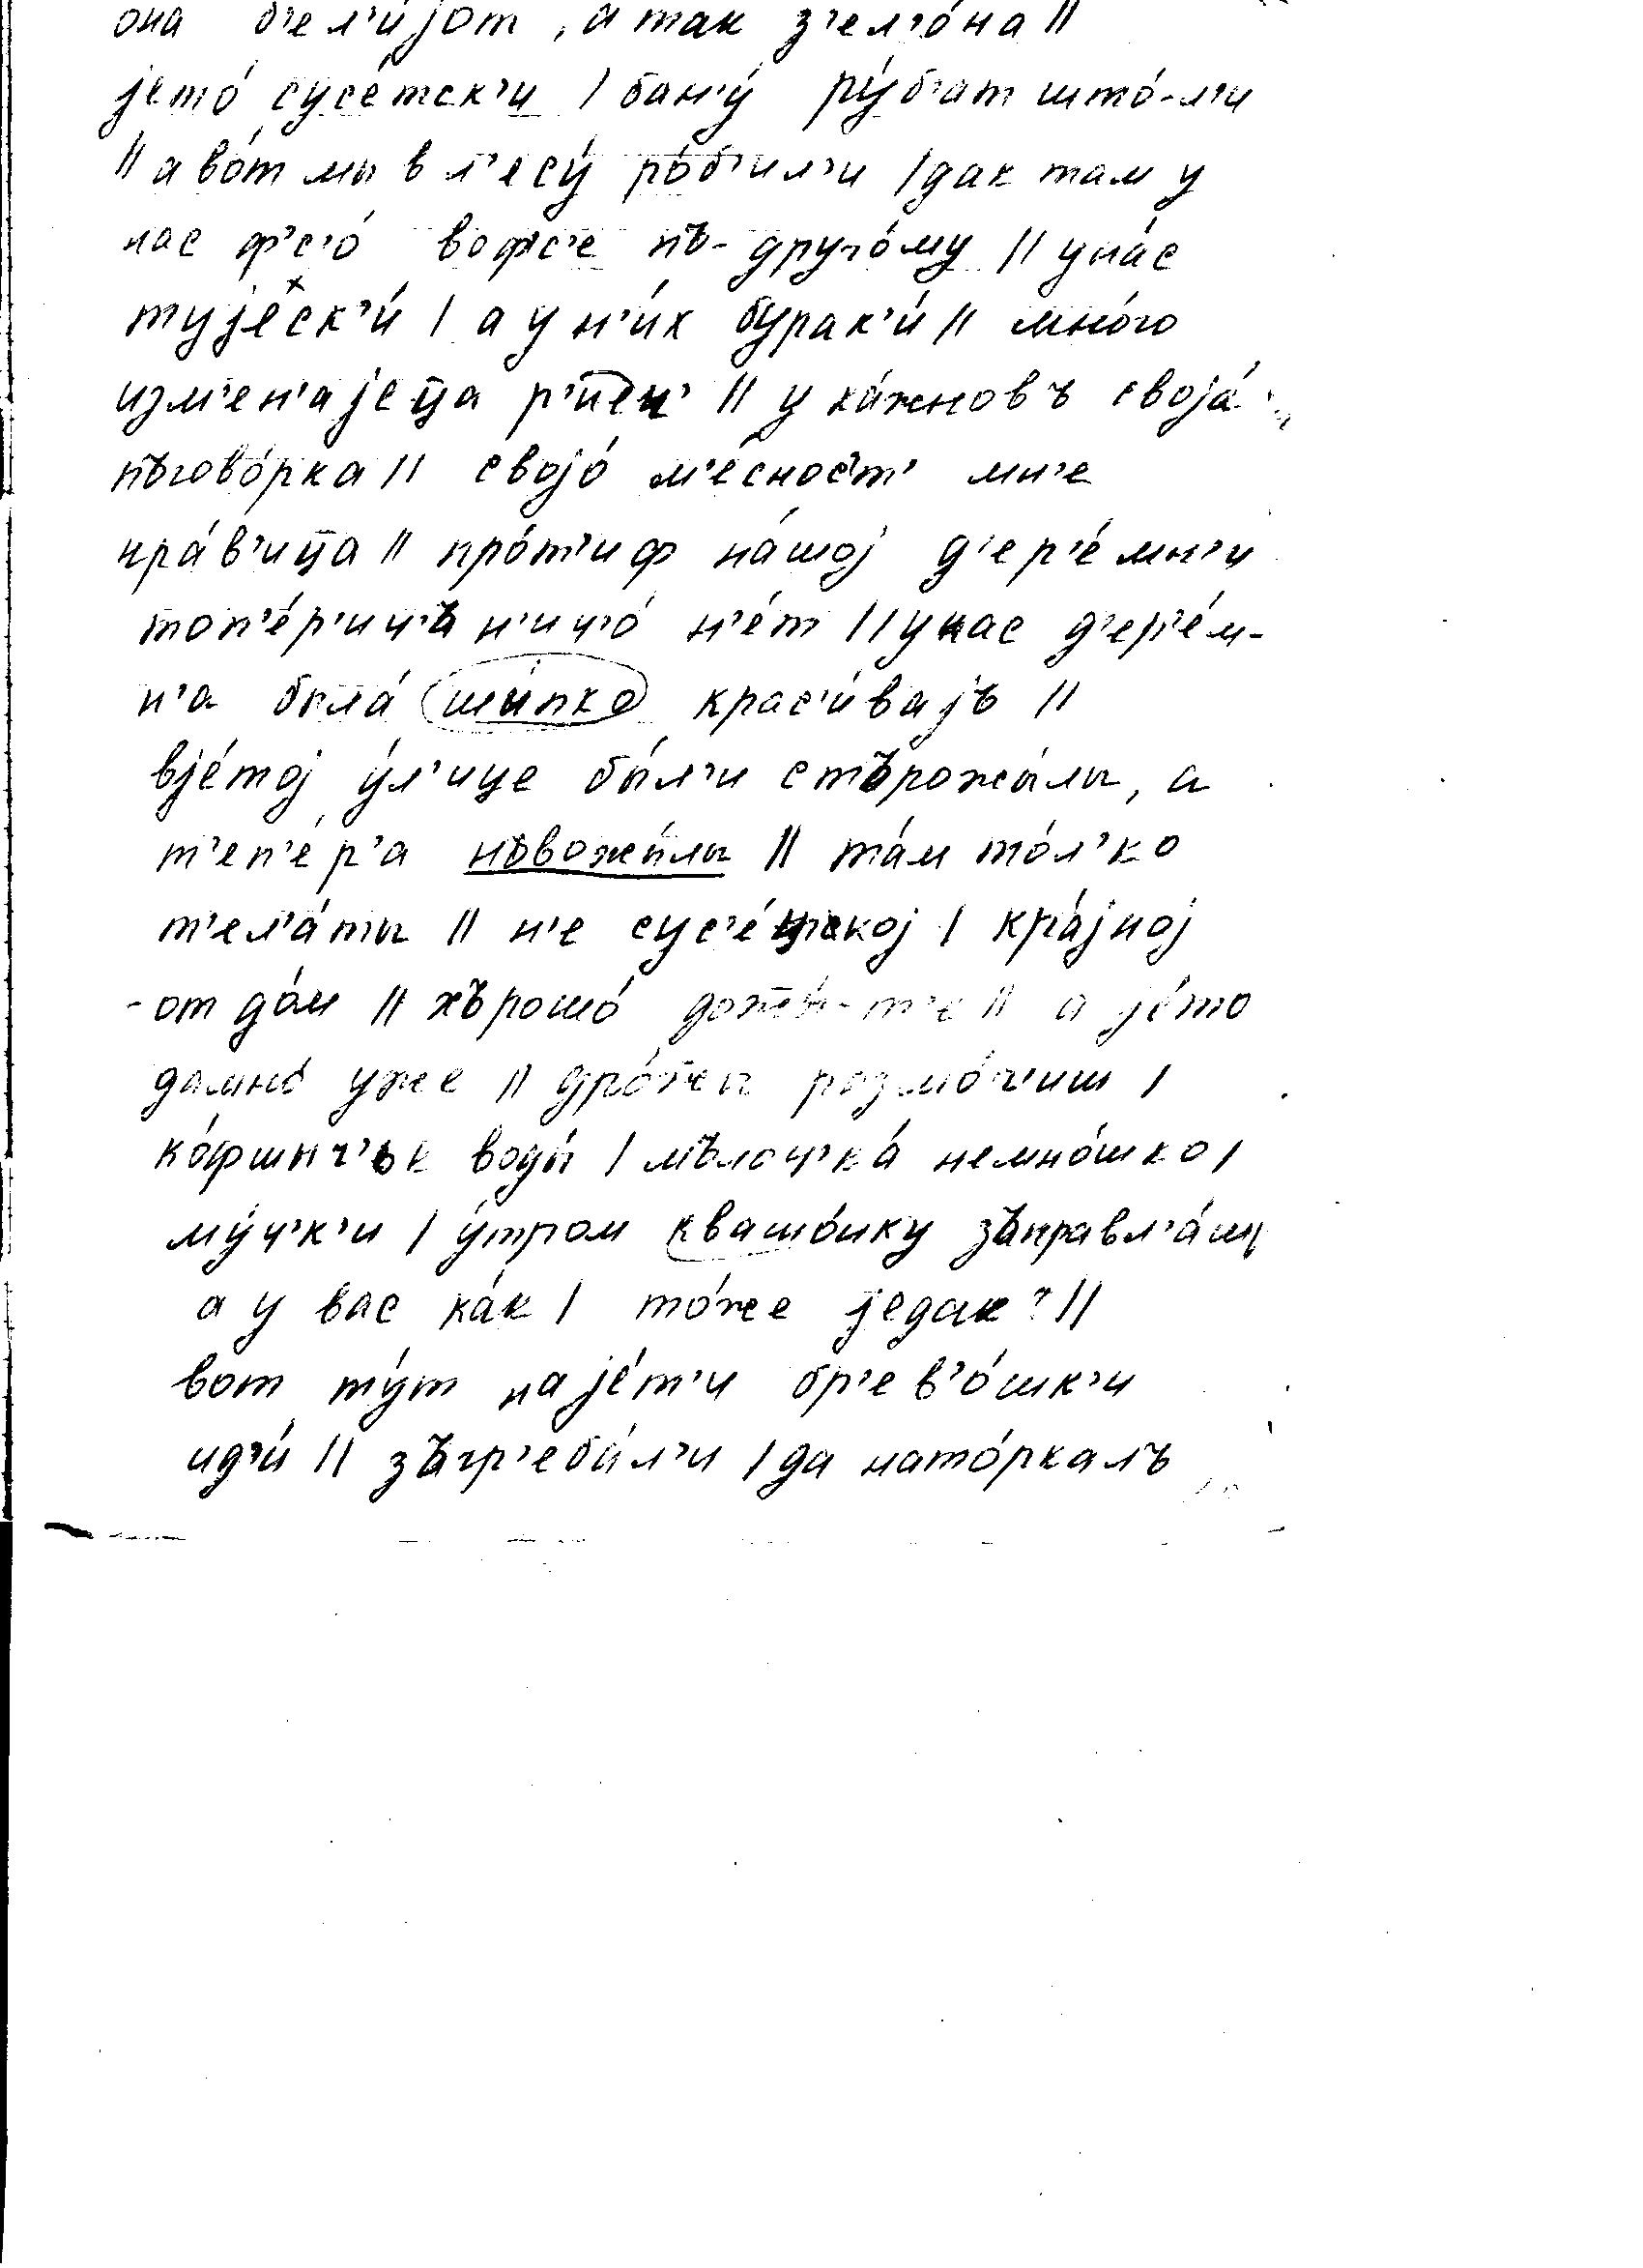 она б'ел'и́јот, а так з'ел'о́на ||
јето́ сусе́тск'и | бан'у́ ру́б'ат што́-л'и
|| а во́т мы в л'есу́ ро́б'ил'и | дак там у
нас ф'с'о́ вофс'е пъ-друго́му || у на́с
тује́ск'и́ | а у н'и́х бурак'и́ || мно́го
изм'ен'ајеца р'иеч' || у ка́жновъ своја́
пъгово́рка || својо́ м'е́сност' мн'е
нра́в'ица || про́т'иф на́шој д'ер'е́мн'и
топ'е́р'ич'ъ н'ич'о́ н'е́т || у нас д'ер'е́м-
н'а была́ шы́пко крас'и́вајъ ||
вје́тој у́л'ице бы́л'и стърожы́лы, а
т'еп'е́р'а нъвожы́лы || та́м то́л'ко
т'ел'а́ты || н'е сус'е́цкој | кра́јној
-от до́м || хърошо́ дожён-т'е || а је́то
дамно́ уже || дро́жжы розмо́ч'иш |
ко́фшыч'ък воды́ | мълоч'ка́ немно́шко |
му́ч'к'и | у́тром квашо́нку зъправл'а́ш
а у вас ка́к | то́же једак? ||
вот ту́т на је́т'и бр'ев'о́шк'и
ид'и́ || зъгр'еба́л'и | да нато́ркалъ